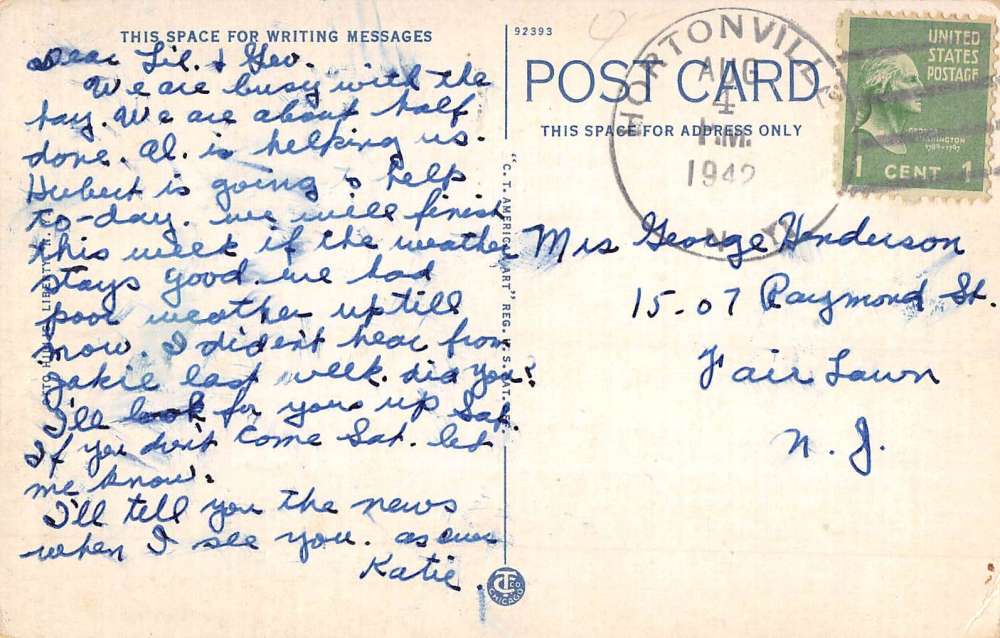 THIS SPACE FOR WRITING MESSAGES
Dear Lil. & Geo.
We are busy with the
hay. We are about half
done. Al. is helking us.
Hubert is going to help
to-day. We will finish
this week if the weather
stays good. we had
poor weather uptill
now. I dident hear from
Jakie last week. did you?
I'll look for you up Sat.
If you don't come Sat. let
me know.
I'll tell you the news
when I see you. as ever
Katie.
"C. T. AMERICAN ART" REG. U. S. PAT. OFF.
CT CO
CHICAGO
92393
POST CARD
THIS SPACE FOR ADDRESS ONLY
HORTONVILLE
AUG
4
P.M.
1942
N.Y.
UNITED
STATES
POSTAGE
GEORGE
WASHINGTON
1789-1797
1 CENT 1
Mrs George Henderson
15-07 Raymond St.
Fair Lawn
N. J.